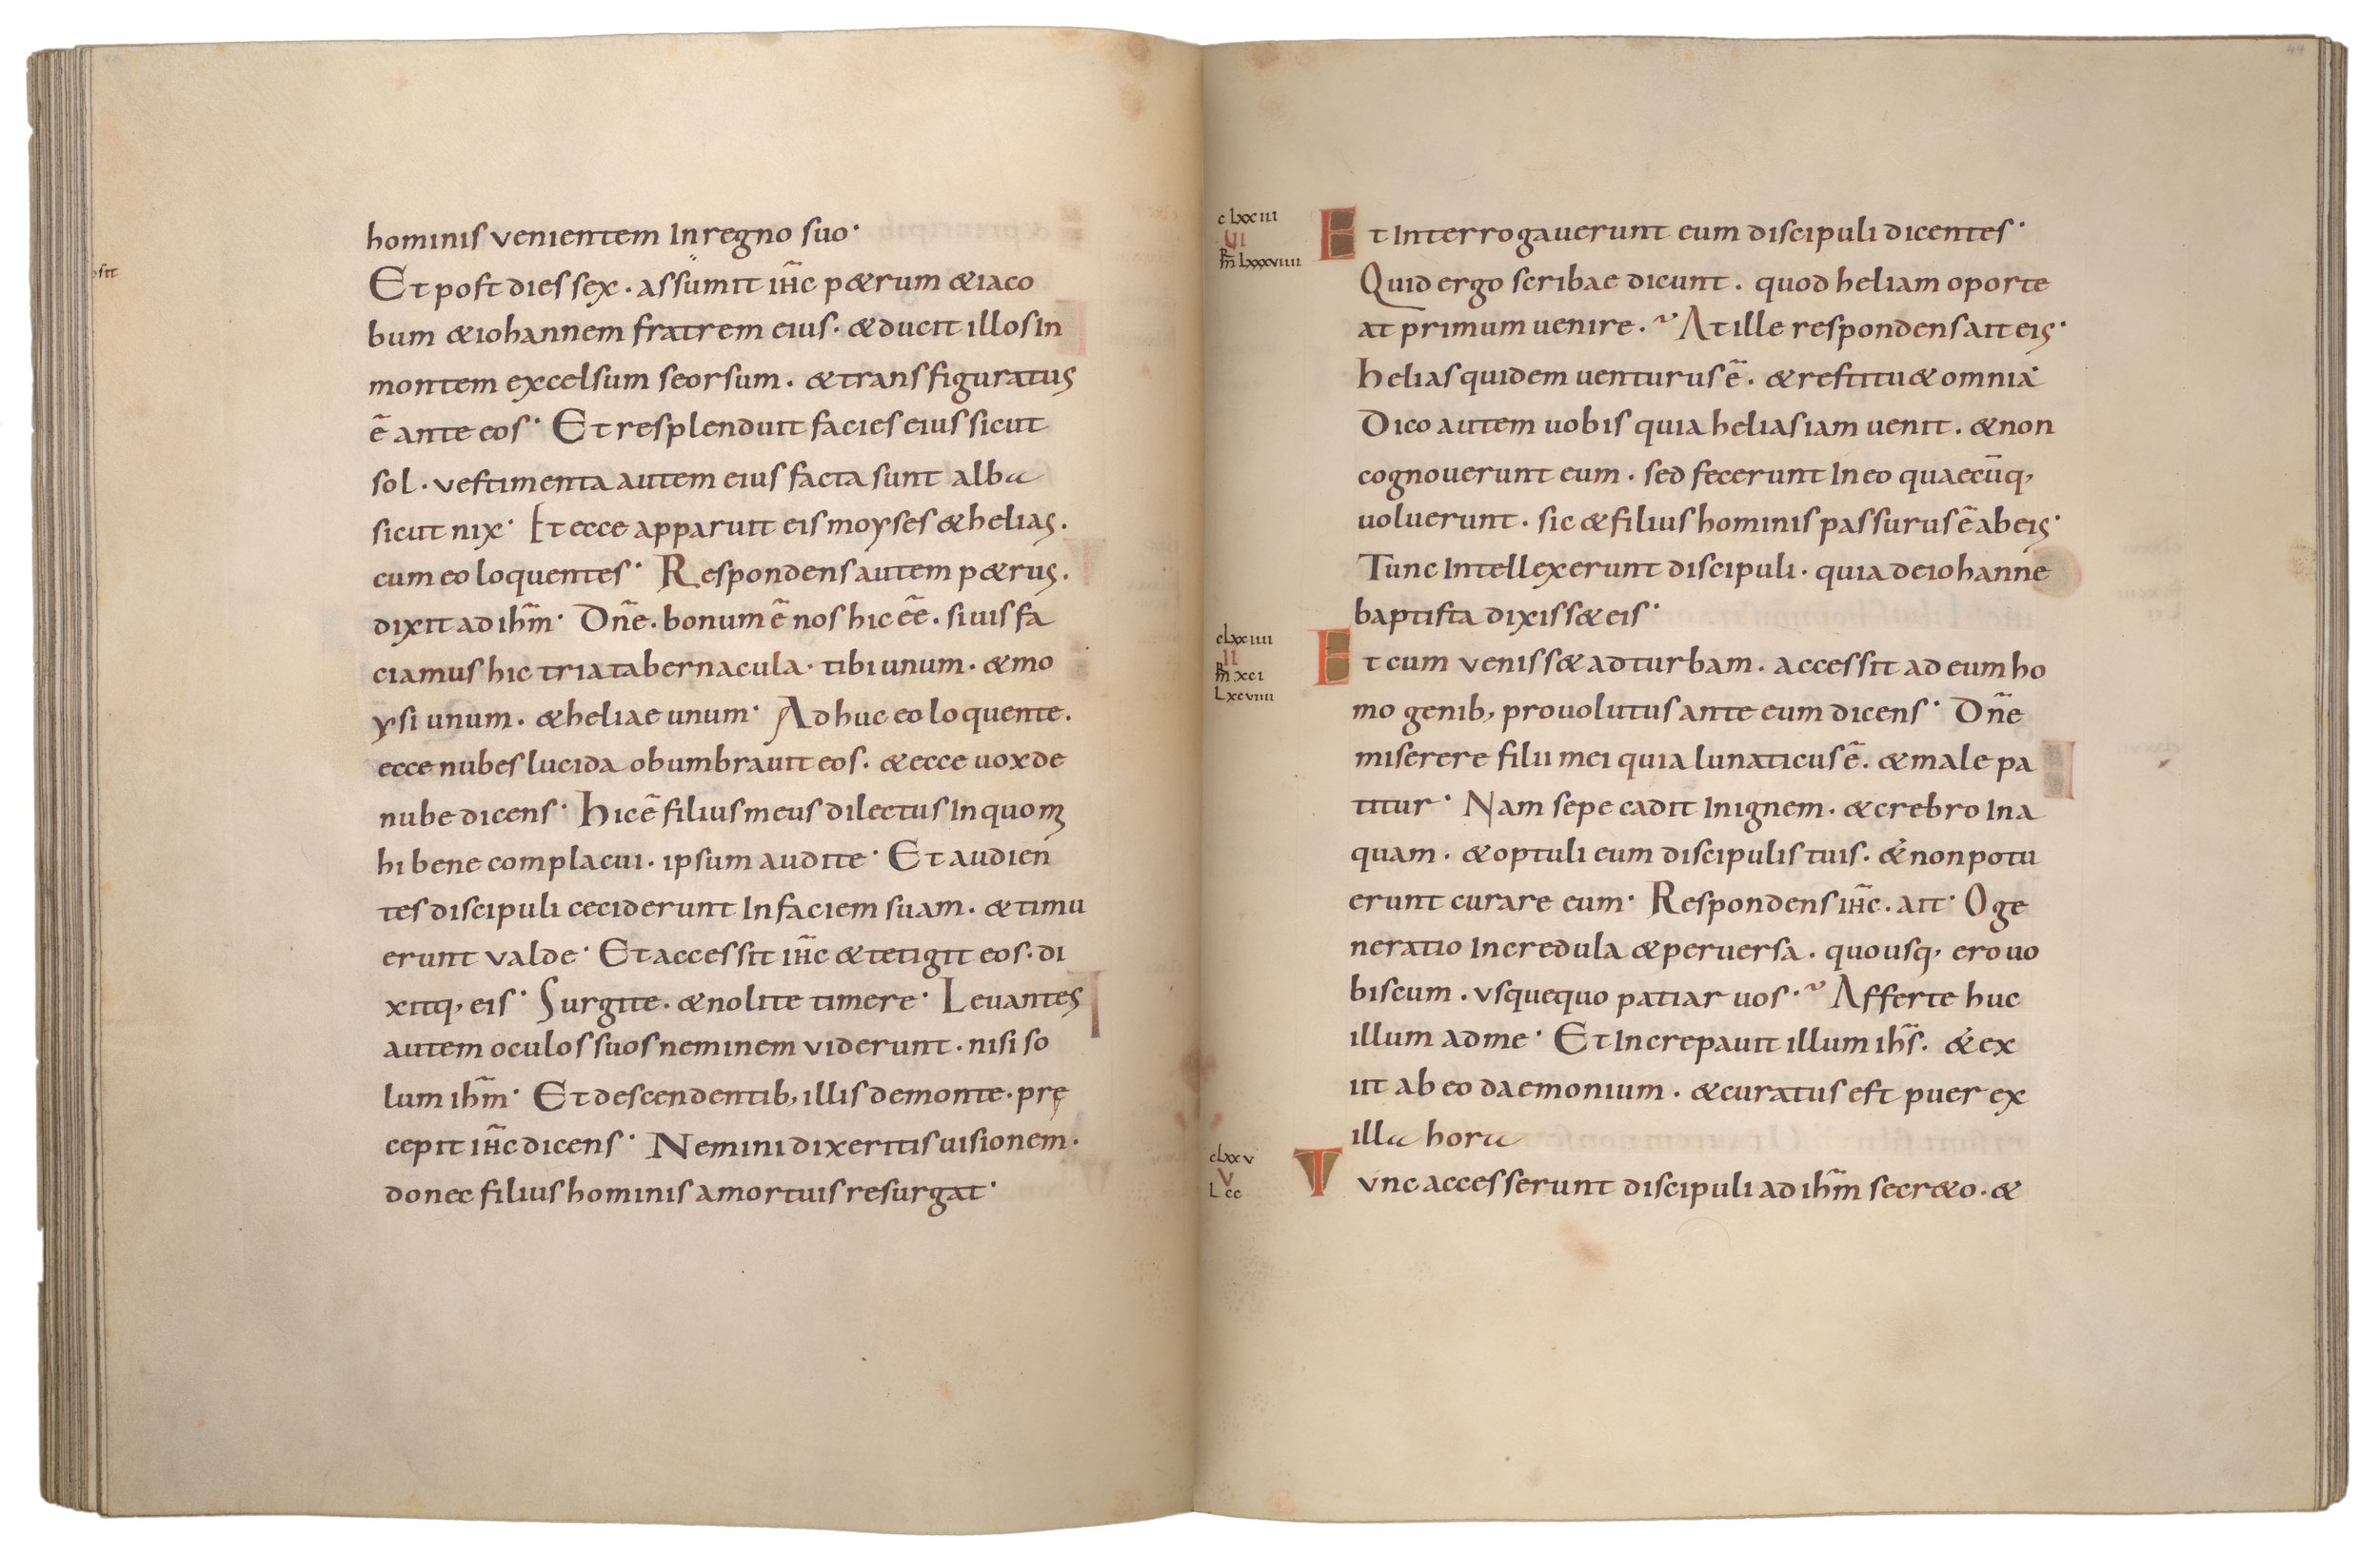 hominis venientem In regno suo·
Et post dies sex . assumit ih̅c p&rum &iaco
bum &iohannem fratrem eius . &ducit illos In
montem excelsum seorsum . &transfiguratus
e̅ ante eos · Et resplenduit facies eius sicut
sol . vestimenta autem eius facta sunt alba
sicut nix · Et ecce apparuit eis moyses &helias .
cum eo loquentes · Respondens autem p&rus .
dixit ad ih̅m · Dn̅e . bonum e̅ nos hic ee̅ . si uis fa
ciamus hic tria tabernacula · tibi unum . &mo
ysi unum . &heliae unum · Adhuc eo loquente .
ecce nubes lucida obumbrauit eos . &ecce uox de
nube dicens · hic e̅ filius meus dilectus In quo m
hi bene complacui . ipsum audite · Et audien
tes discipuli ceciderunt In faciem suam . &timu
erunt valde · Et accessit ih̅c &tetigit eos . di
xitq, eis · Surgite . &nolite timere · Leuantes
autem oculos suos neminem viderunt . nisi so
lum ih̅m · Et descendentib, illis de monte . prę
cepit ih̅c dicens · Nemini dixeritis uisionem .
donec filius hominis amortuis resurgat ·
44
clxxiii
vi
m̅r lxxxviiii
Et Interrogauerunt eum discipuli dicentes ·
Quid ergo scribae dicunt . quod heliam oporte
at primum uenire . At ille respondens ait eis ·
helias quidem uenturus e̅ . &restitu& omnia ·
Dico autem uobis quia helias iam uenit . &non
cognouerunt eum . sed fecerunt In eo quaecu̅q,
uoluerunt . sic &filius hominis passurus e̅ ab eis ·
Tunc Intellexerunt discipuli . quia de iohanne
baptista dixiss& eis ·
clxxiiii
ii
m̅r xci
L xcviiii
Et cum veniss& ad turbam . accessit ad eum ho
mo genib, prouolutus ante eum dicens · Dn̅e
miserere filii mei quia lunaticus e̅ . &male pa
titur · Nam sepe cadit In ignem . &crebro In a
quam . &optuli eum discipulis tuis . &non potu
erunt curare eum · Respondens ih̅c . ait · O ge
neratio Incredula &peruersa . quousq, ero uo
biscum . vsquequo patiar uos · Afferte huc
illum ad me · Et Increpauit illum ih̅s . &ex
iit ab eo daemonium . &curatus est puer ex
illa hora
clxxv
v
L cc
Tvnc accesserunt discipuli ad ih̅m secr&o . &